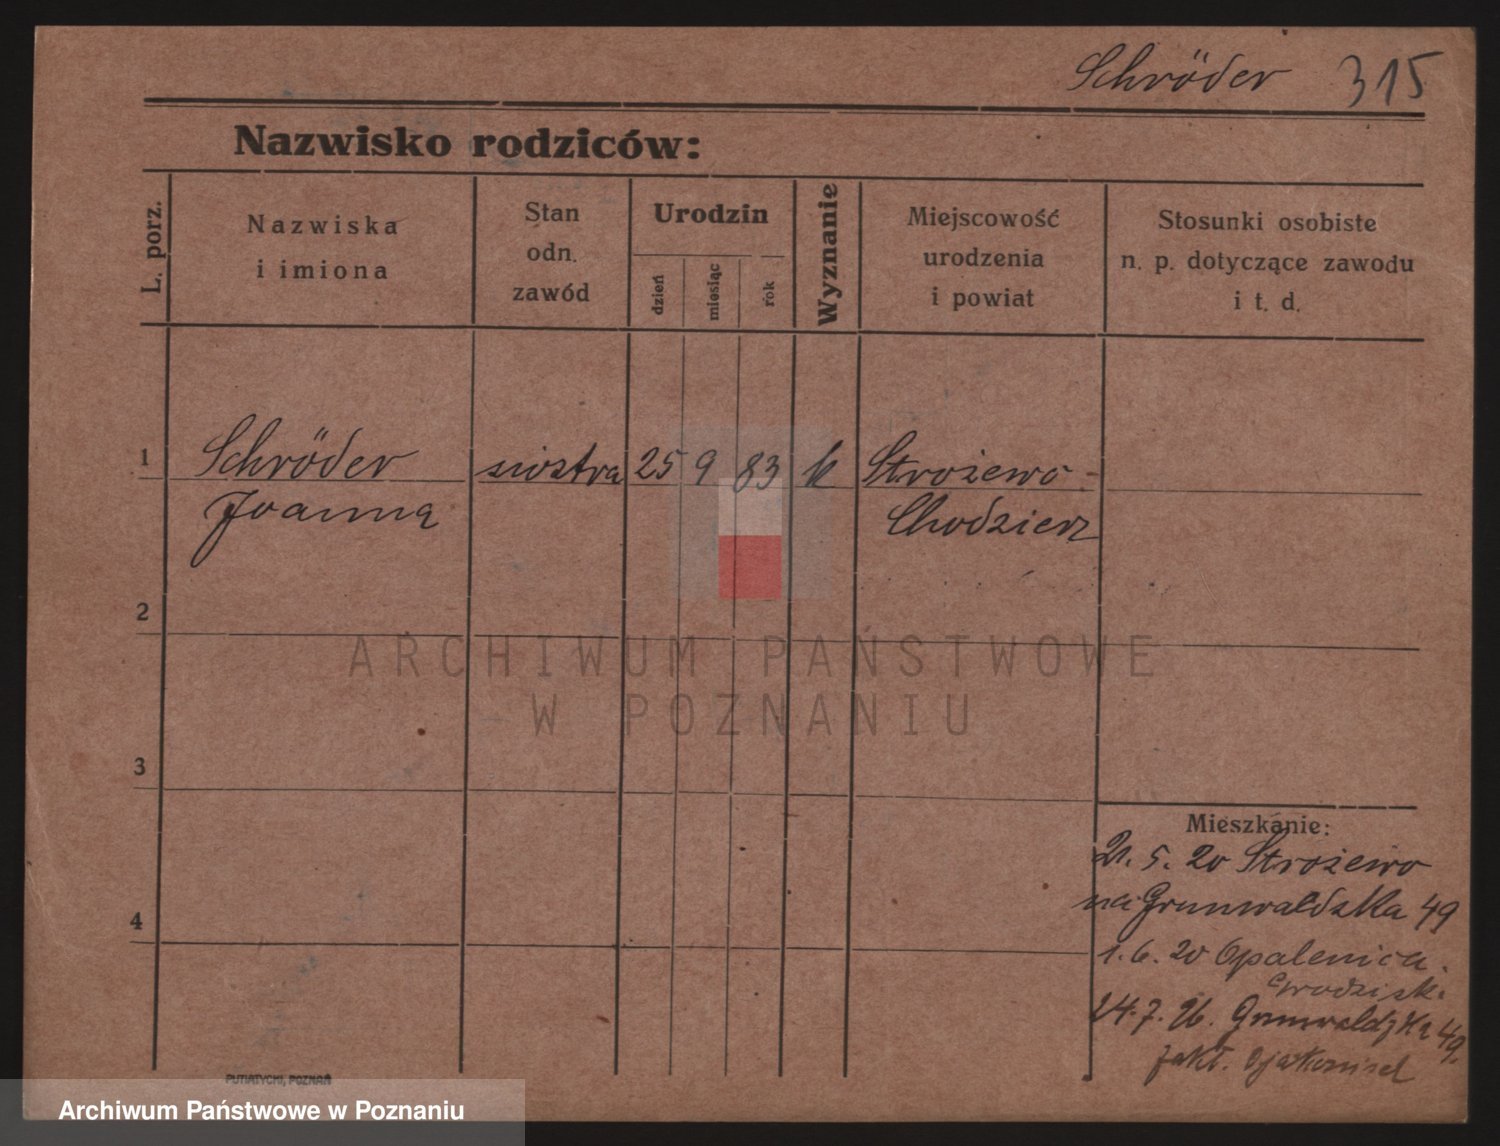 Schröder 315
Nazwisko rodziców:
L. porz.
Nazwiska
i imiona
Stan
odn.
zawód
Urodzin
dzień
miesiąc
rok
Wyznanie
Miejscowość
urodzenia
i powiat
Stosunki osobiste
n. p. dotyczące zawodu
i t. d.
1 Schröder siostra 25 9 83 k Strożewo -
Joanna Chodzież
2
ARCHIWUM PAŃSTWOWE
W POZNANIU
3
Mieszkanie:
21. 5. 20 Strożewo
na Grunwaldzka 49
4
1. 6. 20 Opalenica.
Grodzisk.
24. 7. 26. Grunwaldzka 49.
zakł.
PUTIATYCKI, POZNAŃ
Archiwum Państwowe w Poznaniu